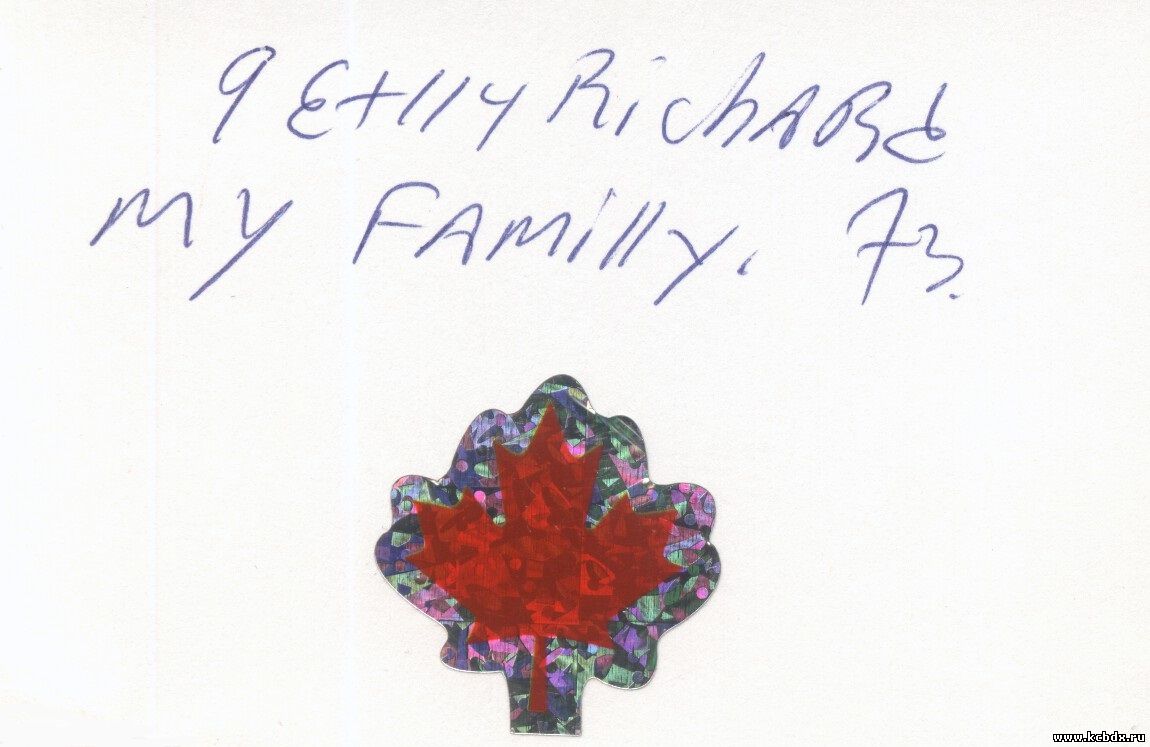 9 Etlly Richard
my Familly. 73.
www.kcbdx.ru